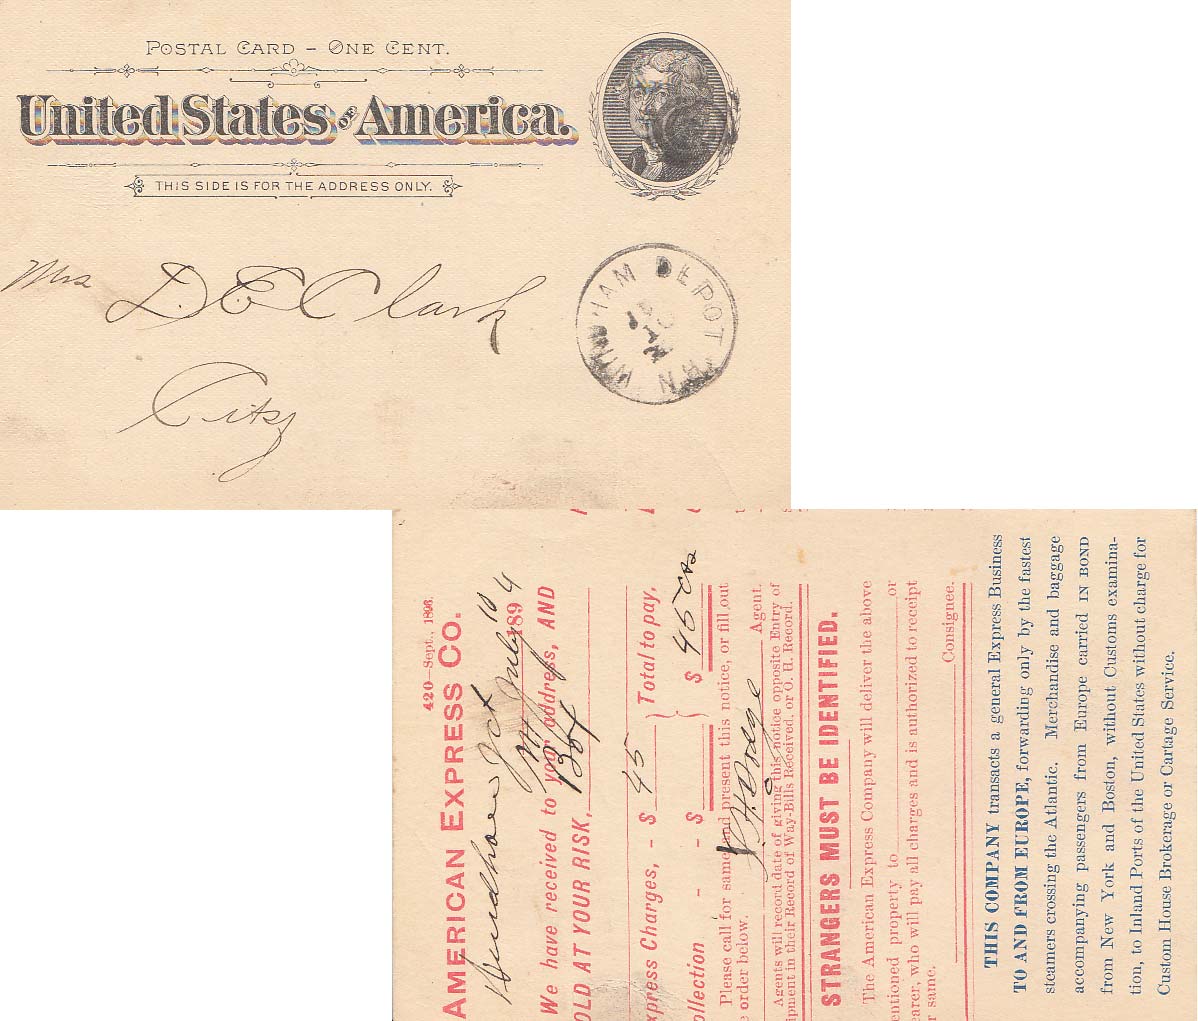 POSTAL CARD - ONE CENT.
United States OF America.
THIS SIDE IS FOR THE ADDRESS ONLY.
Mrs D. E. Clark
City
WINDHAM DEPOT N.H.
420—Sept., 1893.
AMERICAN EXPRESS CO.
Jct July 10 1894
We have received to your address, AND
Box
OLD AT YOUR RISK,
xpress Charges, - $ 45 } Total to pay,
ollection - - $ } $ 45 cts
Please call for same and present this notice, or fill out
e order below.
Agent.
Agents will record date of giving this notice opposite Entry of
ipment in their Record of Way-Bills Received, or O. H. Record.
STRANGERS MUST BE IDENTIFIED.
The American Express Company will deliver the above
entioned property to or
earer, who will pay all charges and is authorized to receipt
r same.
Consignee.
THIS COMPANY transacts a general Express Business
TO AND FROM EUROPE, forwarding only by the fastest
steamers crossing the Atlantic. Merchandise and baggage
accompanying passengers from Europe carried IN BOND
from New York and Boston, without Customs examina-
tion, to Inland Ports of the United States without charge for
Custom House Brokerage or Cartage Service.